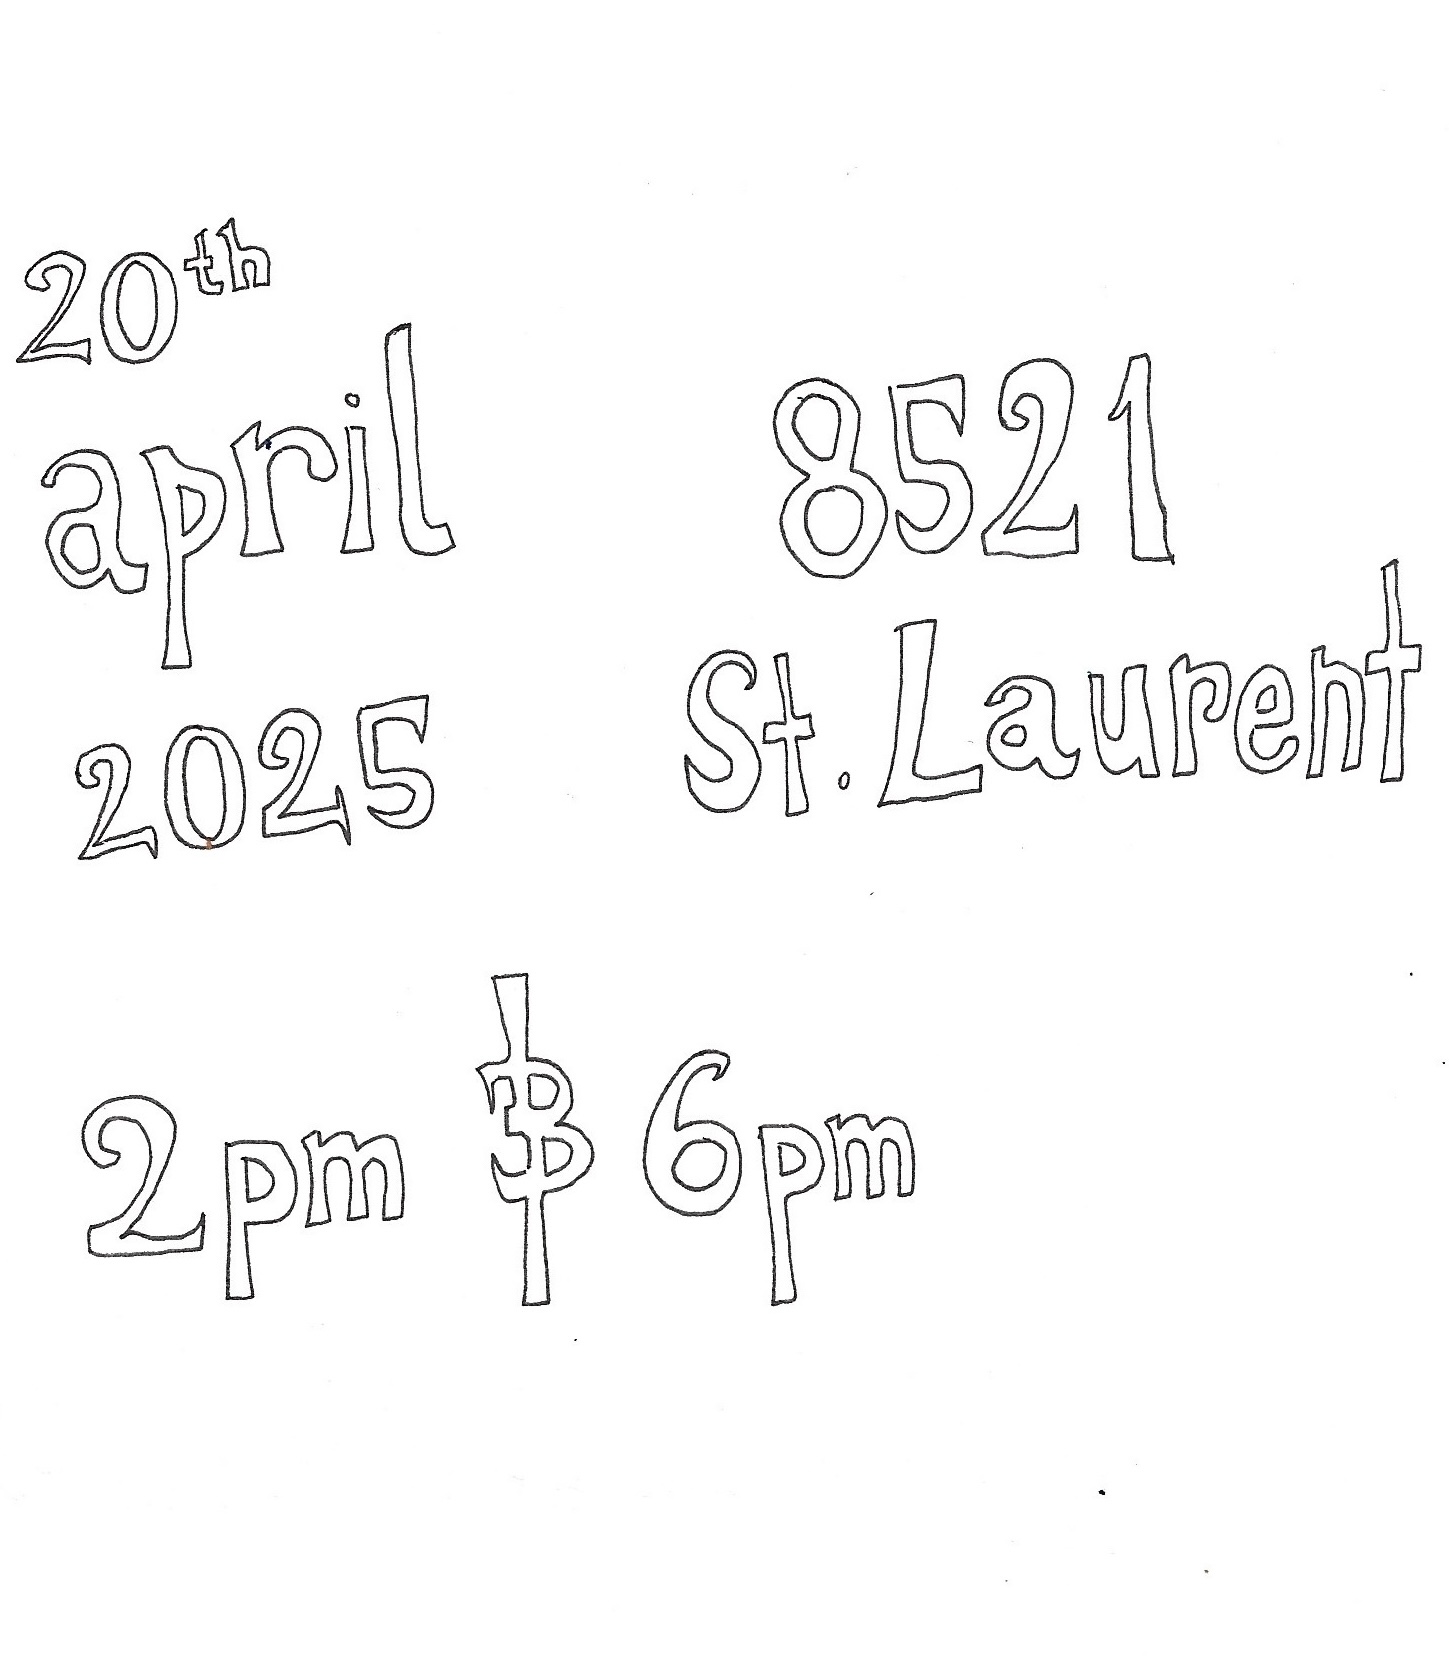 20th
april
2025
8521
St. Laurent
2pm & 6pm